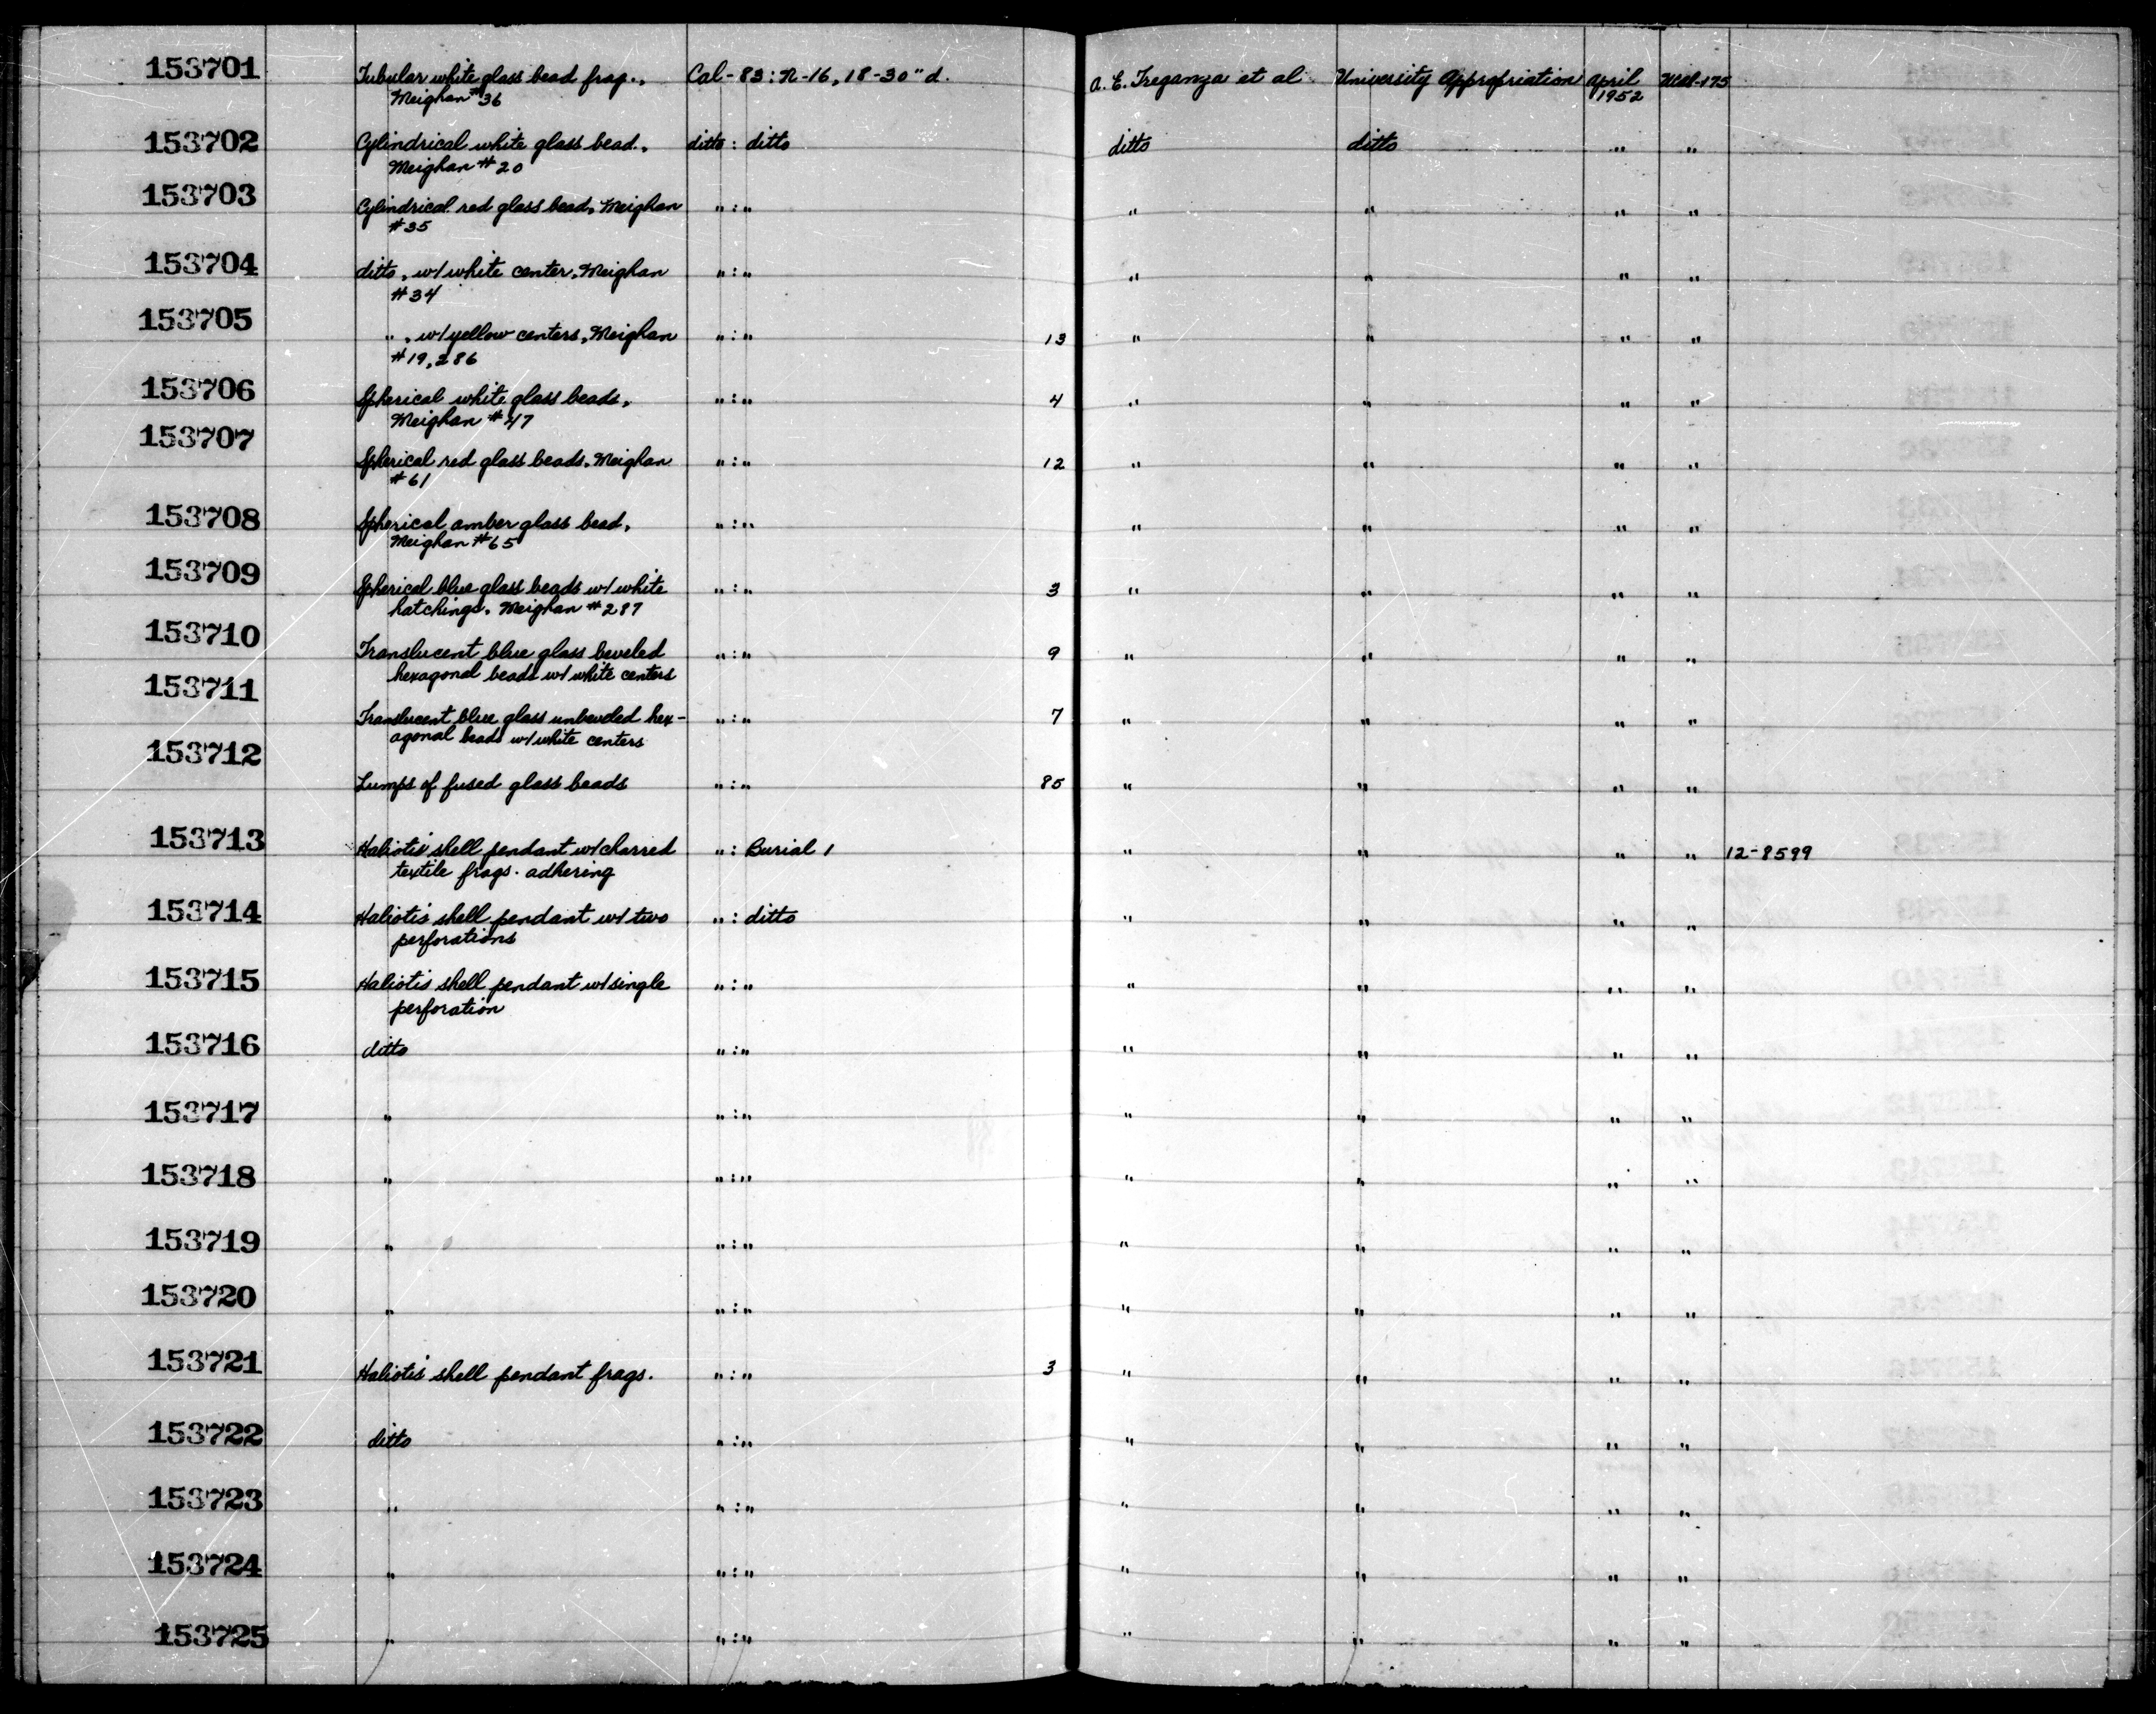 153701 Tubular white glass bead frag., Cal-83: N-16, 18-30" d. A. E. Treganza et al University Appropriation April
Meighan #36 1952
153702 Cylindrical white glass bead, ditto : ditto ditto ditto " "
Meighan #20
153703 Cylindrical red glass bead, Meighan " : " " " " "
#35
153704 ditto, w/ white center, Meighan " : " " " " "
#34
153705 " , w/ yellow centers, Meighan " : " 13 " " " "
#19, 286
153706 Spherical white glass beads, " : " 4 " " " "
Meighan #47
153707 Spherical red glass beads, Meighan " : " 12 " " " "
#61
153708 Spherical amber glass bead, " : " " " " "
Meighan #65
153709 Spherical blue glass beads w/ white " : " 3 " " " "
hatchings, Meighan #287
153710 Translucent blue glass beveled " : " 9 " " " "
hexagonal beads w/ white centers
153711 Translucent blue glass unbeveled hex- " : " 7 " " " "
agonal beads w/ white centers
153712 Lumps of fused glass beads " : " 85 " " " "
153713 Haliotis shell pendant w/ charred " : Burial 1 " " " " 12-8599
textile frags. adhering
153714 Haliotis shell pendant w/ two " : ditto " " " "
perforations
153715 Haliotis shell pendant w/ single " : " " " " "
perforation
153716 ditto " : " " " " "
153717 " " : " " " " "
153718 " " : " " " " "
153719 " " : " " " " "
153720 " " : " " " " "
153721 Haliotis shell pendant frags. " : " 3 " " " "
153722 ditto " : " " " " "
153723 " " : " " " " "
153724 " " : " " " " "
153725 " " : " " " " "